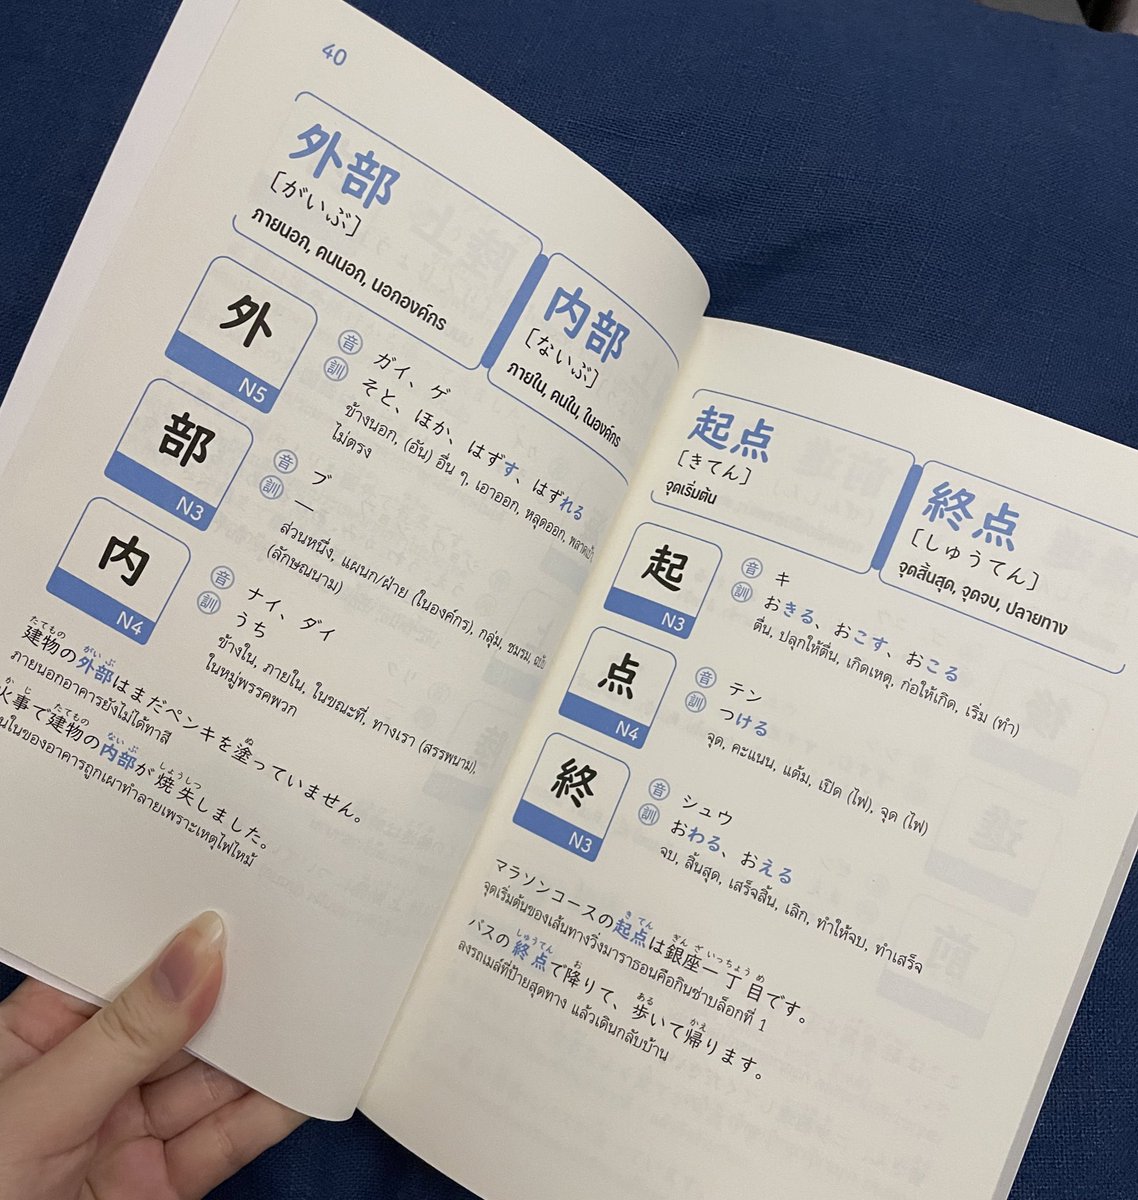 40
外部
[がいぶ]
ภายนอก, คนนอก, นอกองค์กร
内部
[ないぶ]
ภายใน, คนใน, ในองค์กร
外
N5
音 ガイ、ゲ
訓 そと、ほか、はずす、はずれる
ข้างนอก, (อัน) อื่น ๆ, เอาออก, หลุดออก, พลาดเป้า
ไม่ตรง
部
N3
音 ブ
訓 —
ส่วนหนึ่ง, แผนก/ฝ่าย (ในองค์กร), กลุ่ม, ชมรม, ฉบับ
(ลักษณนาม)
内
N4
音 ナイ、ダイ
訓 うち
ข้างใน, ภายใน, ในขณะที่, ทางเรา (สรรพนาม),
ในหมู่พรรคพวก
たてもの がいぶ ぬ
建物の外部はまだペンキを塗っていません。
ภายนอกอาคารยังไม่ได้ทาสี
かじ たてもの ないぶ しょうしつ
火事で建物の内部が焼失しました。
ในของอาคารถูกเผาทำลายเพราะเหตุไฟไหม้
起点
[きてん]
จุดเริ่มต้น
終点
[しゅうてん]
จุดสิ้นสุด, จุดจบ, ปลายทาง
起
N3
音 キ
訓 おきる、おこす、おこる
ตื่น, ปลุกให้ตื่น, เกิดเหตุ, ก่อให้เกิด, เริ่ม (ทำ)
点
N4
音 テン
訓 つける
จุด, คะแนน, แต้ม, เปิด (ไฟ), จุด (ไฟ)
終
N3
音 シュウ
訓 おわる、おえる
จบ, สิ้นสุด, เสร็จสิ้น, เลิก, ทำให้จบ, ทำเสร็จ
きてん ぎんざ いっちょうめ
マラソンコースの起点は銀座一丁目です。
จุดเริ่มต้นของเส้นทางวิ่งมาราธอนคือกินซ่าบล็อกที่ 1
しゅうてん お ある かえ
バスの終点で降りて、歩いて帰ります。
ลงรถเมล์ที่ป้ายสุดทาง แล้วเดินกลับบ้าน